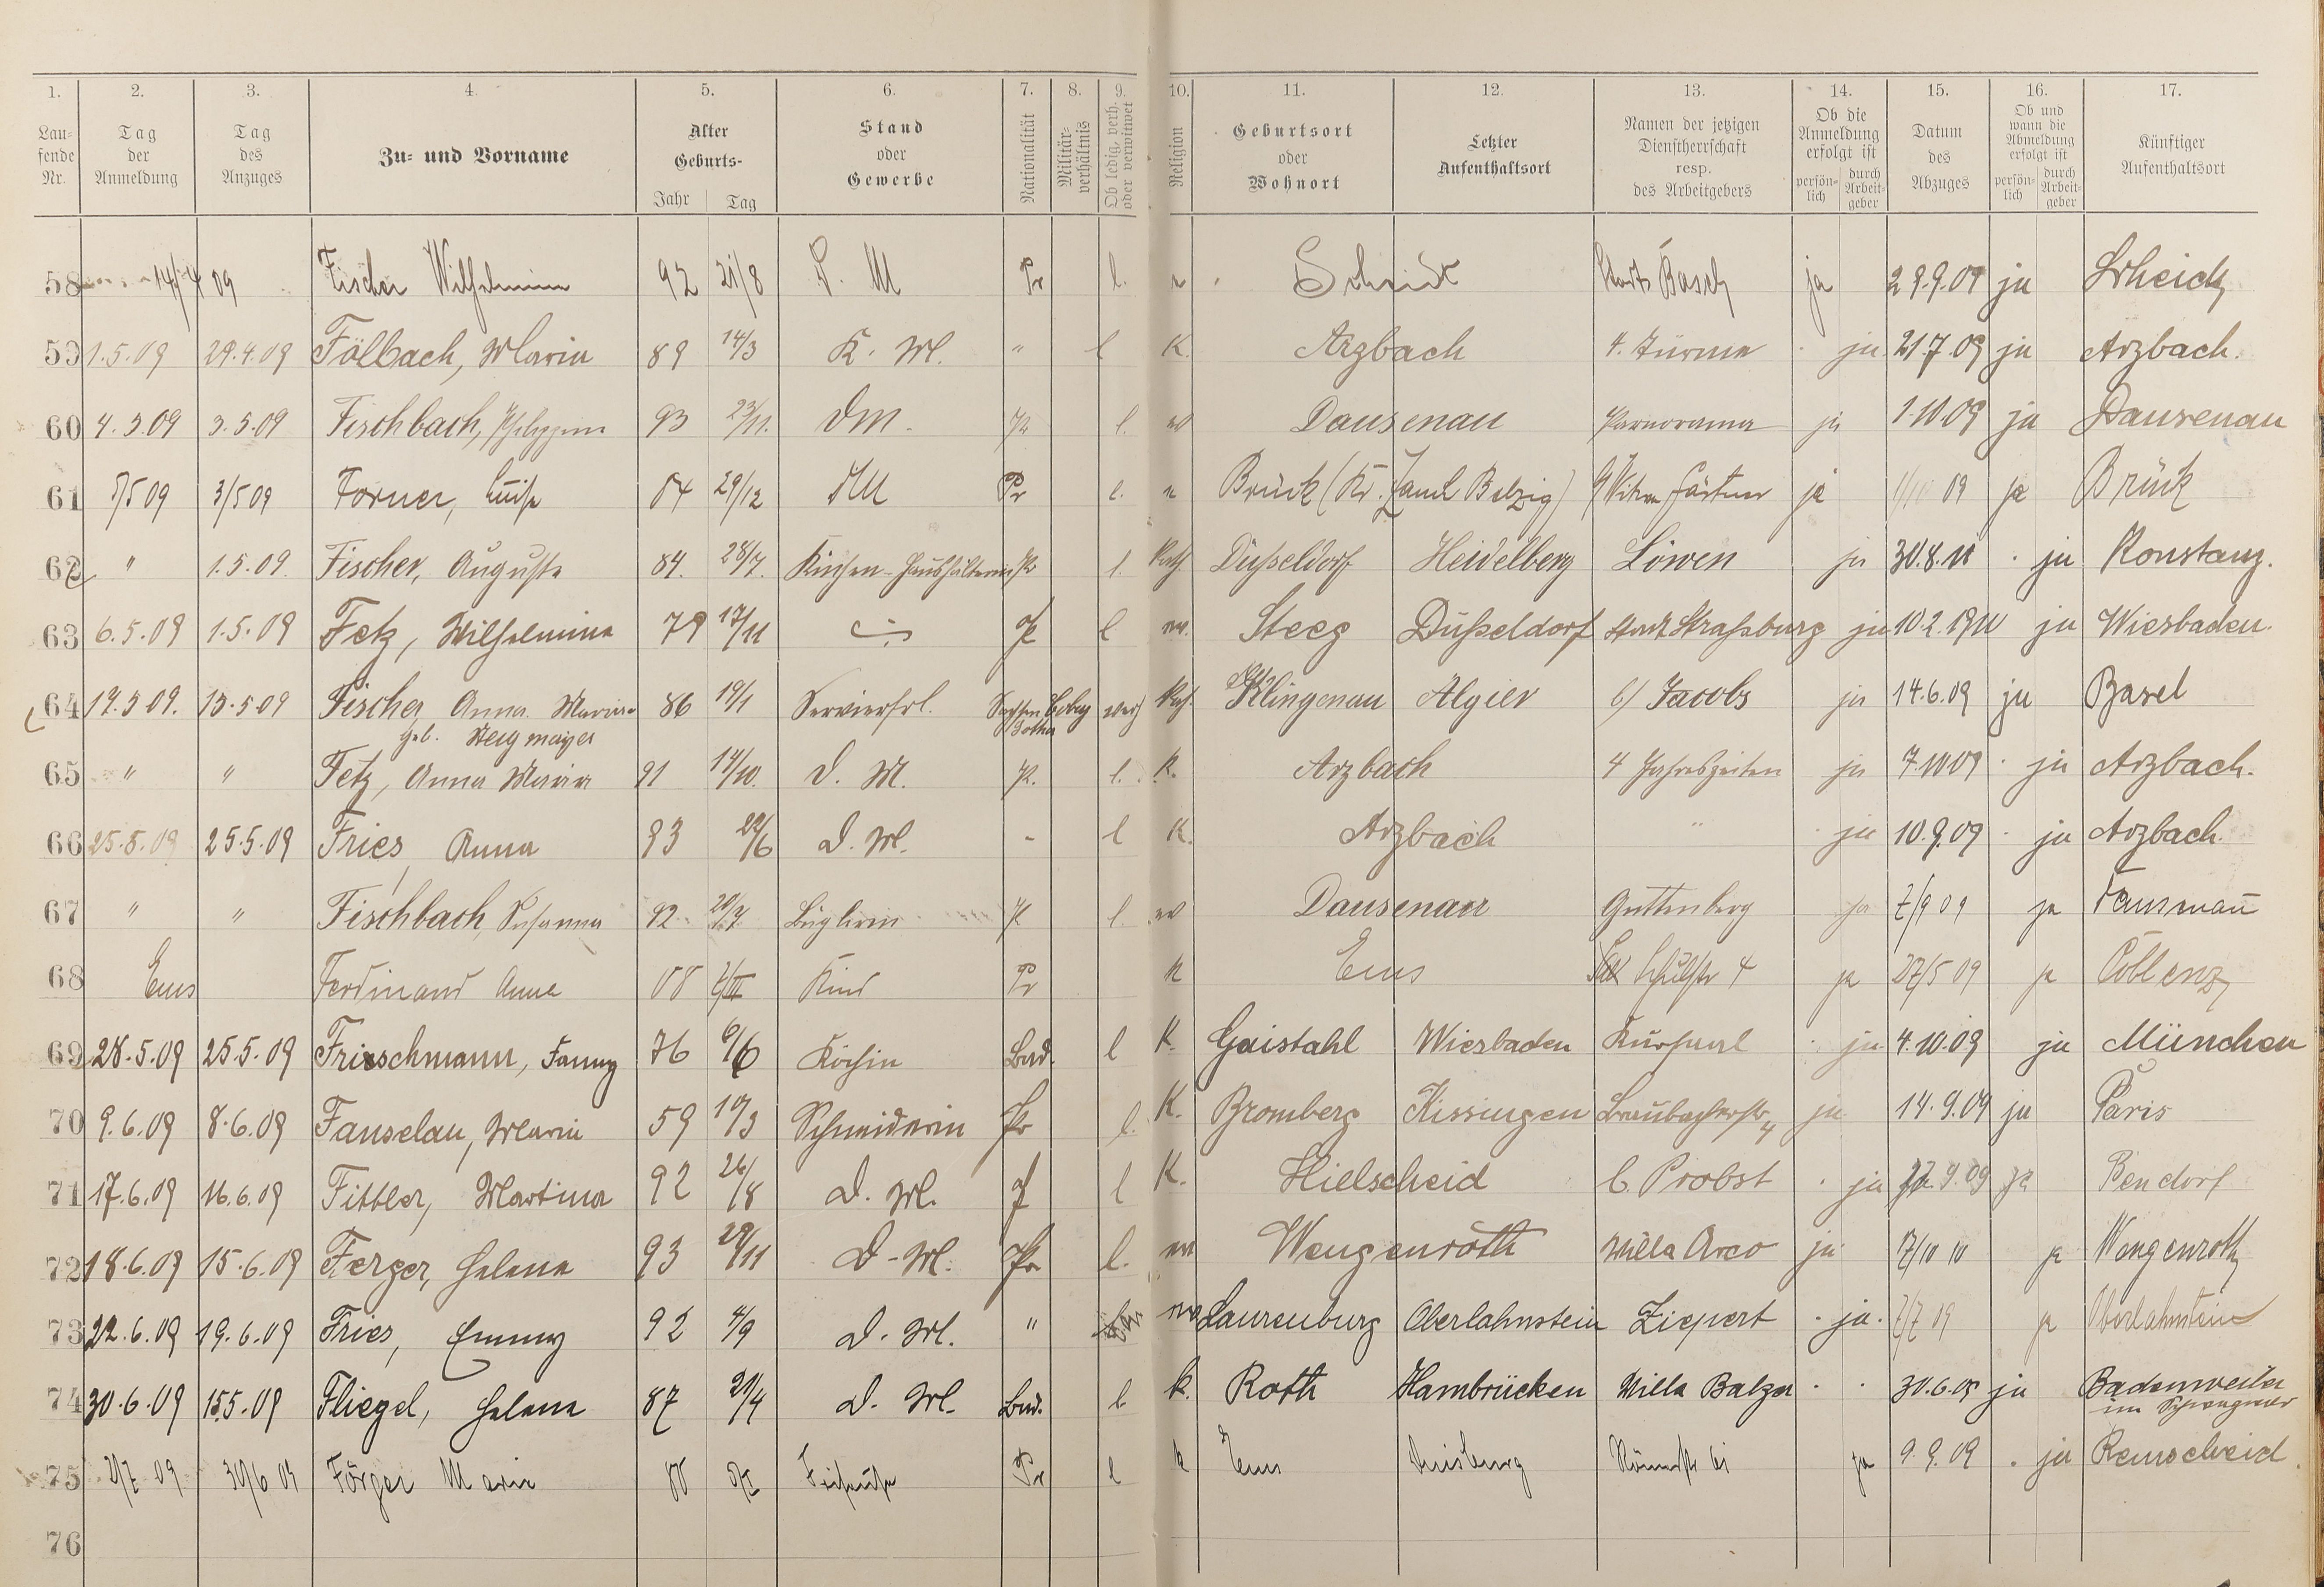 1. 2. 3. 4. 5. 6. 7. 8. 9. 10. 11. 12. 13. 14. 15. 16. 17.
Lau-
fende
Nr.
Tag
der
Anmeldung
Tag
des
Anzuges
Zu- und Vorname
Alter
Geburts-
Jahr Tag
Stand
oder
Gewerbe
Nationalität
Militär-
verhältnis
Ob ledig, verh.
oder verwitwet
Religion
Geburtsort
oder
Wohnort
Letzter
Aufenthaltsort
Namen der jetzigen
Dienstherrschaft
resp.
des Arbeitgebers
Ob die
Anmeldung
erfolgt ist
persön-
lich
durch
Arbeit-
geber
Datum
des
Abzuges
Ob und
wann die
Abmeldung
erfolgt ist
persön-
lich
durch
Arbeit-
geber
Künftiger
Aufenthaltsort
58 14/4 09 Fischer Wilhelmine 92 21/8 D. M Pr l. ja 29.9.09 ja
59 1.5.09 29.4.09 Fölbach, Maria 89 14/3 K. M. " l K. Arzbach 4. Türme ja 21.7.09 ja Arzbach.
60 4.5.09 3.5.09 Fischbach, Philippine 93 23/11. DM. Pr l. ev Dausenau Panorama ja 1.10.09 ja Dausenau
61 5/5 09 3/5 09 Forner, Luise 84 29/12 Pr l. Brück (Kr. Zauch Belzig) ja 09 ja Brück
62 " 1.5.09. Fischer, Auguste 84. 28/7. Küchen-Haushälterin Pr l. Kath. Düsseldorf Heidelberg Löwen ja 30.8.11 ja Konstanz.
63 6.5.09 1.5.09 Fetz, Wilhelmine 79 17/11 l ev. Steeg Düsseldorf Stadt Straßburg ja 10.2.1910 ja Wiesbaden.
64 19.5 09. 15.5 09 Fischer Anna Maria 86 19/1 Servierfrl. Sachsen Coburg Kath. Klingenau Algier b/ Jacobs ja 14.6.09 ja Basel
geb. Stegmayer Gotha
65 " " Fetz, Anna Maria 91 14/10. D. M. Pr. l. K. Arzbach 4 Jahreszeiten ja 7.10 09 ja Arzbach.
66 25.5.09 25.5.09 Fries, Anna 93 22/6 D. M. - l K. Arzbach " ja 10.9.09 ja Arzbach.
67 " " Fischbach, Susanna 92 Büglerin Pr l. ev Dausenau Guttenberg ja 7/9 09 ja
68 Ems Ferdinand Anna 08 Kind Pr k Ems Schulstr 4 ja 27/5 09 ja Coblenz
69 28.5.09 25.5.09 Frieschmann, Fanny 76 6/6 Köchin Bad. l K. Gaistahl Wiesbaden Kursaal ja 4.10.09 ja München
70 9.6.09 8.6.09 Fanselau, Maria 59 10/3 Schneiderin Pr l. K. Bromberg Kissingen Braubacherstr. 4 ja 14.9.09 ja Paris
71 17.6.09 16.6.09 Fittler, Martina 92 26/8 D. M. l K. Hielscheid b. Probst ja 9.09 ja Bendorf
72 18.6.09 15.6.09 Ferger, Helena 93 29/11 D-M. Pr l. ev Wengenroth Villa Arco ja 17/10 10 ja Wengenroth
73 22.6.09 19.6.09 Fries, Emmy 92 4/9 D. M. " ev Laurenburg Oberlahnstein Ziepert ja. 7/7 09 ja Oberlahnstein
74 30.6.09 15.5.09 Fliegel, Helena 87 21/4 D. M. Bad. l. k. Roth Hambrücken Villa Balzer 30.6.09 ja Badenweiler
75 2/7 09 30/6 09 Förger Marie 88 Friseuse Pr l k Ems Duisburg Römerstr 61 ja 9.9.09 ja Remscheid.
76